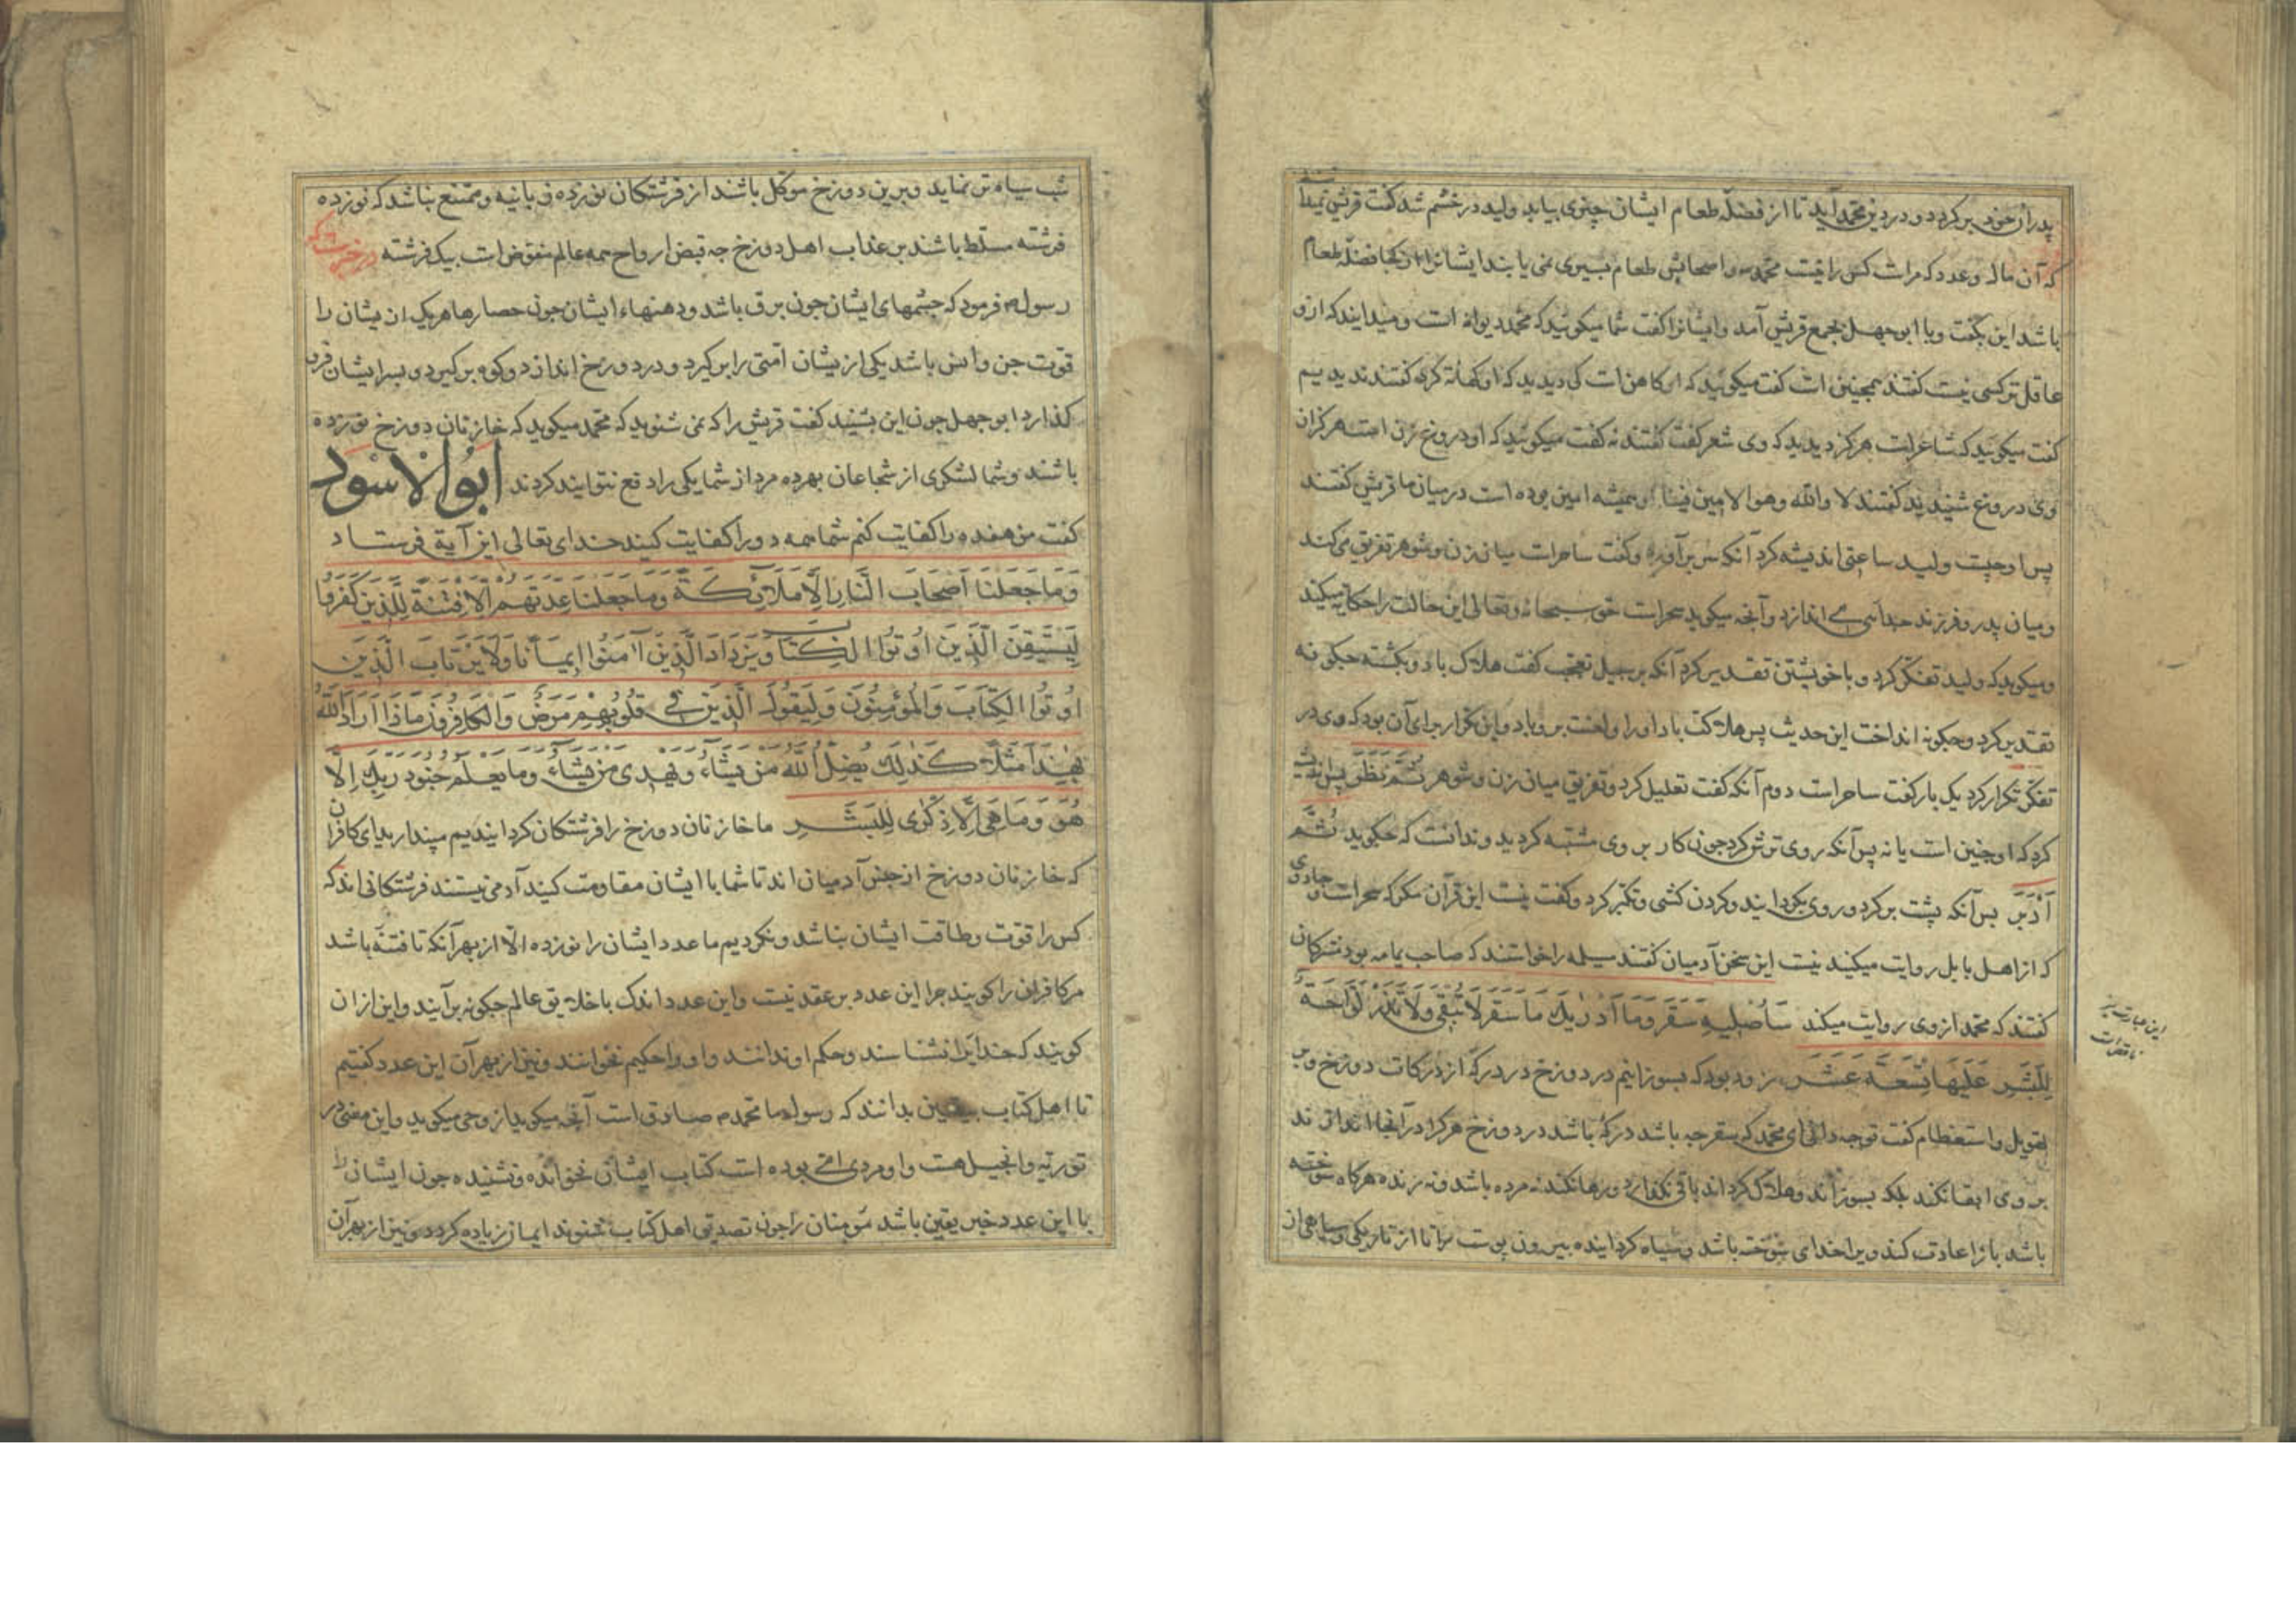 پدران خود بر کردد و در دین محمد آید تا از فضلهٔ طعام ایشان چیزی بیابد ولید در خشم شد گفت قریش نمیدانند
که آن مال و عدد که مراست کس را نیست محمد و اصحابش طعام بسیری نمی یابند ایشانرا از کجا فضلهٔ طعام
باشد این بگفت و با ابوجهل بجمع قریش آمد و ایشانرا گفت شما میکوئید که محمد دیوانه است و میدانید که ازو
عاقل تر کسی نیست گفتند همچنین است گفت میکوئید که او کاهن است کی دیدید که او کهانة کرد گفتند ندیدیم
گفت میکوئید که شاعرست هرکز دیدید که وی شعر گفت گفتند نه گفت میکوئید که او دروغ زن است هرکز از آن
وی دروغ شنیدید گفتند لا والله وهو الامین فینا او همیشه امین بوده است در میان ما قریش گفتند
پس او چیست ولید ساعتی اندیشه کرد آنکه سر برآورد و گفت ساحرات میان زن و شوهر تفریق می کند
و میان پدر و فرزند جدائی می اندازد و آنچه میکوید سحرات حق سبحانه وتعالی این حالت را حکایة میکند
و میکوید که ولید تفکر کرد و با خویشتن تقدیر کرد آنکه بر سبیل تعجب گفت هلاک باد و بکشته چکونه
تقدیر کرد و چکونه انداخت این حدیث پس هلاکت باد او را و لعنت برو باد و این تکرار برای آن بود که وی در
تفکر تکرار کرد یک بار گفت ساحر است دوم آنکه گفت تعلیل کرد و تفریق میان زن و شوهر ثُمَّ نَظَرَ پس اندیشه
کرد که او چنین است یا نه پس آنکه روی ترش کرد چون کار بر وی مشتبه کردید و ندانست که چکوید ثُمَّ
اَدْبَرَ پس آنکه پشت بر کرد و روی بکردانید و کردن کشی و تکبر کرد و گفت نیست این قرآن مکر که سحرات و جادوی
که از اهل بابل روایت میکند نیست این سخن آدمیان گفتند مسیلمه را خواستند که صاحب یمامه بود مشرکان
گفتند که محمد از وی روایت میکند سَاُصْلِیهِ سَقَرَ وَمَا اَدْرٰیكَ مَا سَقَرُ لَا تُبْقِی وَلَا تَذَرُ لَوَّاحَةٌ
لِلْبَشَرِ عَلَیْهَا تِسْعَةَ عَشَرَ زود بود که بسوزانیم در دوزخ در درکهٔ از درکات دوزخ و بر
تهویل و استعظام گفت تو چه دانی ای محمد که سقر چه باشد درکهٔ باشد در دوزخ هرکرا در آنجا اندازند
بر وی ابقا نکند بلکه بسوزاند و هلاک کرداند باقی نکذارد و رها نکند نه مرده باشد و نه زنده هرکاه سوخته
باشد باز اعادت کند و یرا خدای سوخته باشد و سیاه کرداینده بیرون پوست مرا تا از تاریکی و سیاهی از
این عبارت نیز
ناقص است
شب سیاه تر نماید و برین دوزخ موکل باشند از فرشتکان نوزده زبانیه و ممتنع نباشد که نوزده
فرشته مسلط باشند بر عذاب اهل دوزخ چه قبض ارواح همه عالم مفوض است بیک فرشته
رسول فرمود که چشمهای ایشان چون برق باشد و دهنهاء ایشان چون حصارها هر یک از یشان را
قوت جن و انس باشد یکی از یشان امتی را بر کیرد و در دوزخ اندازد و کوه بر کیرد و بسر ایشان فرو
کذارد ابوجهل چون این بشنید گفت قریش را که نمی شنوید که محمد میکوید که خازنان دوزخ نوزده
باشند و شما لشکری از شجاعان بهر ده مرد از شما یکی را دفع نتوانید کردند ابوالاسود
گفت من هفده را کفایت کنم شما همه دو را کفایت کنید خدای تعالی این آیة فرستاد
وَمَا جَعَلْنَا اَصْحَابَ النَّارِ اِلَّا مَلَائِكَةً وَمَا جَعَلْنَا عِدَّتَهُمْ اِلَّا فِتْنَةً لِلَّذِینَ كَفَرُوا
لِیَسْتَیْقِنَ الَّذِینَ اُوتُوا الْكِتَابَ وَیَزْدَادَ الَّذِینَ اٰمَنُوا اِیمَانًا وَلَا یَرْتَابَ الَّذِینَ
اُوتُوا الْكِتَابَ وَالْمُؤْمِنُونَ وَلِیَقُولَ الَّذِینَ فِی قُلُوبِهِمْ مَرَضٌ وَالْكَافِرُونَ مَاذَا اَرَادَ اللّٰهُ
بِهٰذَا مَثَلًا كَذٰلِكَ یُضِلُّ اللّٰهُ مَنْ یَشَاءُ وَیَهْدِی مَنْ یَشَاءُ وَمَا یَعْلَمُ جُنُودَ رَبِّكَ اِلَّا
هُوَ وَمَا هِیَ اِلَّا ذِكْرٰی لِلْبَشَرِ ما خازنان دوزخ را فرشتکان کردانیدیم مپندارید ای کافران
که خازنان دوزخ از جنس آدمیان اند تا شما با ایشان مقاومت کنید آدمی نیستند فرشتکانی اند که
کس را قوت و طاقت ایشان نباشد و نکردیم ما عدد ایشان را نوزده الا از بهر آنکه تا فتنه باشد
مر کافران را کویند چرا این عدد بر عقد نیست و این عدد اندک با خلایق عالم چکونه برآیند و این از آن
کویند که خدایرا نشناسند و حکم او ندانند و او را حکیم نخوانند و نیز از بهر آن این عدد گفتیم
تا اهل کتاب بیقین بدانند که رسول ما محمد صادق است آنچه میکوید از وحی میکوید و این معنی در
توریة و انجیل هست و او مردی امی بوده است کتاب ایشان نخوانده و نشنیده چون ایشان را
با این عدد خبر یقین باشد مؤمنان را چون تصدیق اهل کتاب شنوند ایمان زیاده کردد و نیز از بهر آن